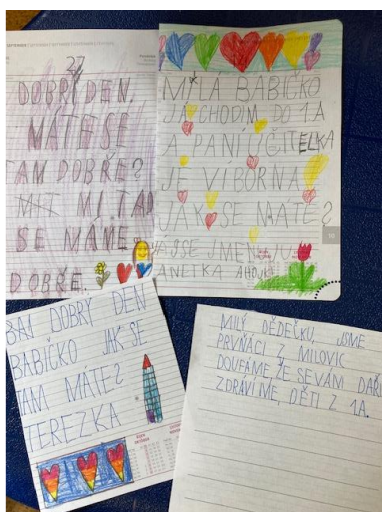 27
DOBRÝ DEN,
MÁTE SE
TAM DOBŘE?
MI TAD
SE MÁME
DOBŘE.
MILÁ BABIČKO
JÁ CHODÍM DO 1.A
A PANÍ UČITELKA
JE VÍBORNÁ
JAK SE MÁTE?
JÁ SSE JMENUJU
ANETKA AHOJ
DOBRÝ DEN
BABIČKO JAK SE
TAM MÁTE?
TEREZKA
MILÝ DĚDEČKU, JSME
PRVŇÁCI Z MILOVIC
DOUFÁME ŽE SE VÁM DAŘÍ
ZDRAVÍ ME, DĚTI Z 1A.